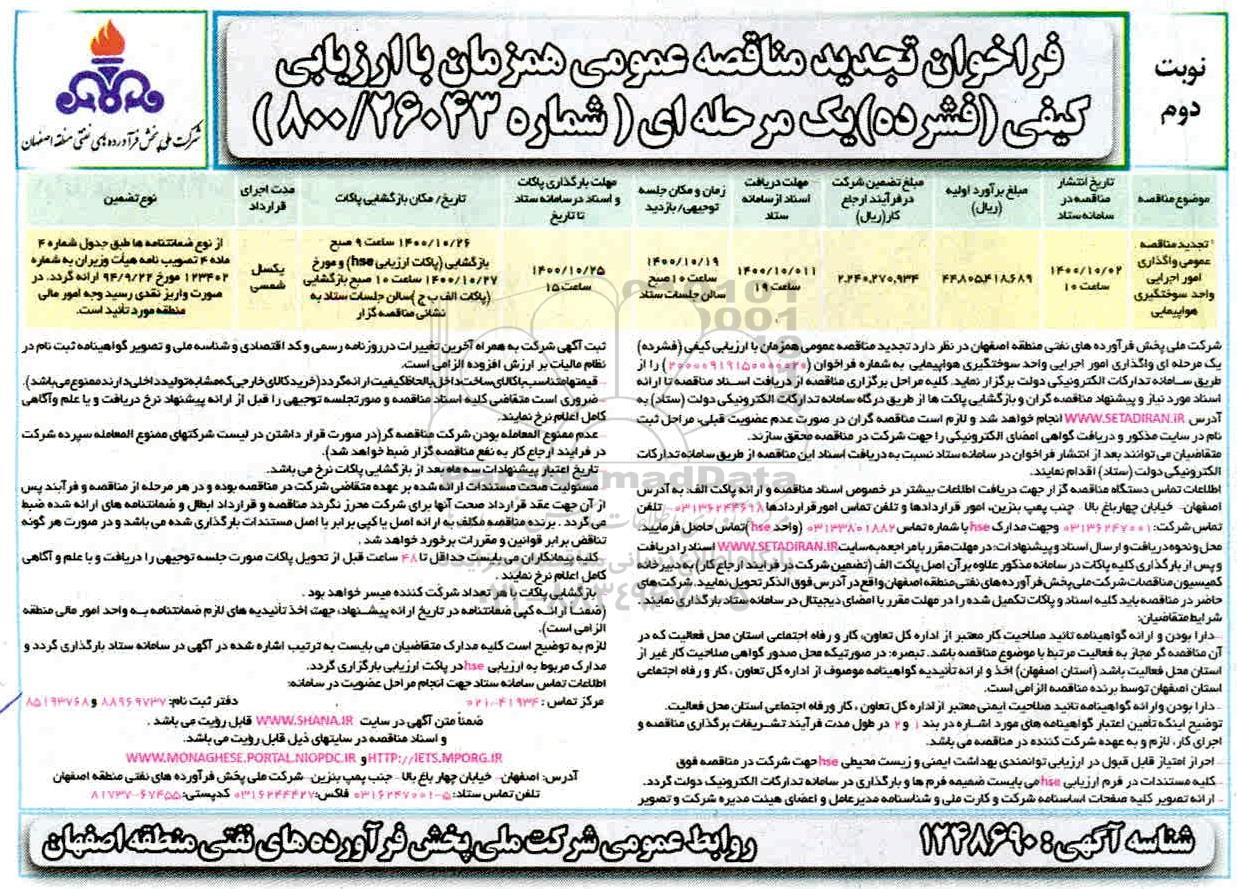 نوبت
دوم
فراخوان تجدید مناقصه عمومی همزمان با ارزیابی
کیفی (فشرده) یک مرحله ای ( شماره ۸۰۰/۲۶۰۴۳ )
شرکت ملی پخش فرآورده های نفتی منطقه اصفهان
موضوع مناقصه
تاریخ انتشار
مناقصه در
سامانه ستاد
مبلغ برآورد اولیه
(ریال)
مبلغ تضمین شرکت
در فرآیند ارجاع
کار(ریال)
مهلت دریافت
اسناد از سامانه
ستاد
زمان و مکان جلسه
توجیهی/ بازدید
مهلت بارگذاری پاکات
و اسناد در سامانه ستاد
تا تاریخ
تاریخ/ مکان بازگشایی پاکات
مدت اجرای
قرارداد
نوع تضمین
تجدید مناقصه
عمومی واگذاری
امور اجرایی
واحد سوختگیری
هواپیمایی
۱۴۰۰/۱۰/۰۲
ساعت ۱۰
۴۴,۸۰۵,۴۱۸,۶۸۹
۲,۲۴۰,۲۷۰,۹۳۴
۱۴۰۰/۱۰/۰۱۱
ساعت ۱۹
۱۴۰۰/۱۰/۱۹
ساعت ۱۰ صبح
سالن جلسات ستاد
۱۴۰۰/۱۰/۲۵
ساعت ۱۵
۱۴۰۰/۱۰/۲۶ ساعت ۹ صبح
بازگشایی (پاکات ارزیابی hse) و مورخ
۱۴۰۰/۱۰/۲۷ ساعت ۱۰ صبح بازگشایی
(پاکات الف ب ج )سالن جلسات ستاد به
نشانی مناقصه گزار
یکسال
شمسی
از نوع ضمانتنامه ها طبق جدول شماره ۴
ماده ۴ تصویب نامه هیأت وزیران به شماره
۱۲۳۴۰۲ مورخ ۹۴/۹/۲۲ ارائه گردد. در
صورت واریز نقدی رسید وجه امور مالی
منطقه مورد تأئید است.
شرکت ملی پخش فرآورده های نفتی منطقه اصفهان در نظر دارد تجدید مناقصه عمومی همزمان با ارزیابی کیفی (فشرده)
یک مرحله ای واگذاری امور اجرایی واحد سوختگیری هواپیمایی به شماره فراخوان (۲۰۰۰۰۹۱۹۱۵۰۰۰۰۲۰) را از
طریق سامانه تدارکات الکترونیکی دولت برگزار نماید. کلیه مراحل برگزاری مناقصه از دریافت اسناد مناقصه تا ارائه
اسناد مورد نیاز و پیشنهاد مناقصه گران و بازگشایی پاکت ها از طریق درگاه سامانه تدارکات الکترونیکی دولت (ستاد) به
آدرس WWW.SETADIRAN.IR انجام خواهد شد و لازم است مناقصه گران در صورت عدم عضویت قبلی، مراحل ثبت
نام در سایت مذکور و دریافت گواهی امضای الکترونیکی را جهت شرکت در مناقصه محقق سازند.
متقاضیان می توانند بعد از انتشار فراخوان در سامانه ستاد نسبت به دریافت اسناد این مناقصه از طریق سامانه تدارکات
الکترونیکی دولت (ستاد) اقدام نمایند.
اطلاعات تماس دستگاه مناقصه گزار جهت دریافت اطلاعات بیشتر در خصوص اسناد مناقصه و ارائه پاکت الف: به آدرس
اصفهان- خیابان چهارباغ بالا - جنب پمپ بنزین، امور قراردادها و تلفن تماس امور قراردادها ۰۳۱۳۶۲۴۴۶۹۸ تلفن
تماس شرکت: ۰۳۱۳۶۲۴۷۰۰۱ وجهت مدارک hse با شماره تماس ۰۳۱۳۳۸۰۱۸۸۲ (واحد hse )تماس حاصل فرمایید.
محل و نحوه دریافت و ارسال اسناد و پیشنهادات: در مهلت مقرر با مراجعه به سایت WWW.SETADIRAN.IR اسناد را دریافت
و پس از بارگذاری کلیه پاکات در سامانه مذکور علاوه بر آن اصل پاکت الف (تضمین شرکت در فرایند ارجاع کار) به دبیرخانه
کمیسیون مناقصات شرکت ملی پخش فرآورده های نفتی منطقه اصفهان واقع در آدرس فوق الذکر تحویل نمایید. شرکت های
حاضر در مناقصه باید کلیه اسناد و پاکات تکمیل شده را در مهلت مقرر با امضای دیجیتال در سامانه ستاد بارگذاری نمایند.
شرایط متقاضیان:
-دارا بودن و ارائه گواهینامه تائید صلاحیت کار معتبر از اداره کل تعاون، کار و رفاه اجتماعی استان محل فعالیت که در
آن مناقصه گر مجاز به فعالیت مرتبط با موضوع مناقصه باشد. تبصره: در صورتیکه محل صدور گواهی صلاحیت کار غیر از
استان محل فعالیت باشد (استان اصفهان) اخذ و ارائه تأئیدیه گواهینامه موصوف از اداره کل تعاون ، کار و رفاه اجتماعی
استان اصفهان توسط برنده مناقصه الزامی است.
-دارا بودن وارائه گواهینامه تائید صلاحیت ایمنی معتبر از اداره کل تعاون ، کار ورفاه اجتماعی استان محل فعالیت.
توضیح اینکه تأمین اعتبار گواهینامه های مورد اشاره در بند ۱ و ۲ در طول مدت فرآیند تشریفات برگذاری مناقصه و
اجرای کار، لازم و به عهده شرکت کننده در مناقصه می باشد.
-احراز امتیاز قابل قبول در ارزیابی توانمندی بهداشت ایمنی و زیست محیطی hse جهت شرکت در مناقصه فوق
-کلیه مستندات در فرم ارزیابی hse می بایست ضمیمه فرم ها و بارگذاری در سامانه تدارکات الکترونیک دولت گردد.
- ارائه تصویر کلیه صفحات اساسنامه شرکت و کارت ملی و شناسنامه مدیرعامل و اعضای هیئت مدیره شرکت و تصویر
ثبت آگهی شرکت به همراه آخرین تغییرات در روزنامه رسمی و کد اقتصادی و شناسه ملی و تصویر گواهینامه ثبت نام در
نظام مالیات بر ارزش افزوده الزامی است.
-قیمتها متناسب با کالای ساخت داخل با لحاظ کیفیت ارائه گردد (خرید کالای خارجی که مشابه تولید داخلی دارند ممنوع می باشد).
-ضروری است متقاضی کلیه اسناد مناقصه و صورتجلسه توجیهی را قبل از ارائه پیشنهاد نرخ دریافت و با علم وآگاهی
کامل اعلام نرخ نمایند.
-عدم ممنوع المعامله بودن شرکت مناقصه گر(در صورت قرار داشتن در لیست شرکتهای ممنوع المعامله سپرده شرکت
در فرایند ارجاع کار به نفع مناقصه گزار ضبط خواهد شد).
-تاریخ اعتبار پیشنهادات سه ماه بعد از بازگشایی پاکات نرخ می باشد.
-مسئولیت صحت مستندات ارائه شده بر عهده متقاضی شرکت در مناقصه بوده و در هر مرحله از مناقصه و فرآیند پس
از آن جهت عقد قرارداد صحت آنها برای شرکت محرز نگردد مناقصه و قرارداد ابطال و ضمانتنامه های ارائه شده ضبط
می گردد . برنده مناقصه مکلف به ارائه اصل یا کپی برابر با اصل مستندات بارگذاری شده می باشد و در صورت هر گونه
تناقض برابر قوانین و مقررات برخورد خواهد شد .
-کلیه پیمانکاران می بایست حداقل تا ۴۸ ساعت قبل از تحویل پاکات صورت جلسه توجیهی را دریافت و با علم و آگاهی
کامل اعلام نرخ نمایند .
-بازگشایی پاکات با هر تعداد شرکت کننده میسر خواهد بود .
(ضمناً ارائه کپی ضمانتنامه در تاریخ ارائه پیشنهاد، جهت اخذ تأئیدیه های لازم ضمانتنامه به واحد امور مالی منطقه
الزامی است).
لازم به توضیح است کلیه مدارک متقاضیان می بایست به ترتیب اشاره شده در آگهی در سامانه ستاد بارگذاری گردد و
مدارک مربوط به ارزیابی hse در پاکت ارزیابی بارگزاری گردد.
اطلاعات تماس سامانه ستاد جهت انجام مراحل عضویت در سامانه:
مرکز تماس : ۴۱۹۳۴-۰۲۱ دفتر ثبت نام: ۸۸۹۶۹۷۳۷ و ۸۵۱۹۳۷۶۸
ضمناً متن آگهی در سایت WWW.SHANA.IR قابل رؤیت می باشد .
و اسناد مناقصه در سایتهای ذیل قابل رؤیت می باشد.
HTTP://IETS.MPORG.IR و WWW.MONAGHESE.PORTAL.NIOPDC.IR
آدرس: اصفهان- خیابان چهار باغ بالا - جنب پمپ بنزین- شرکت ملی پخش فرآورده های نفتی منطقه اصفهان
تلفن تماس ستاد: ۵-۰۳۱۶۲۴۷۰۰۱ فاکس: ۰۳۱۶۲۴۴۴۲۷ کدپستی: ۶۷۴۵۵-۸۱۷۳۷
شناسه آگهی: ۱۲۴۸۶۹۰
روابط عمومی شرکت ملی پخش فرآورده های نفتی منطقه اصفهان
ParsNamadData